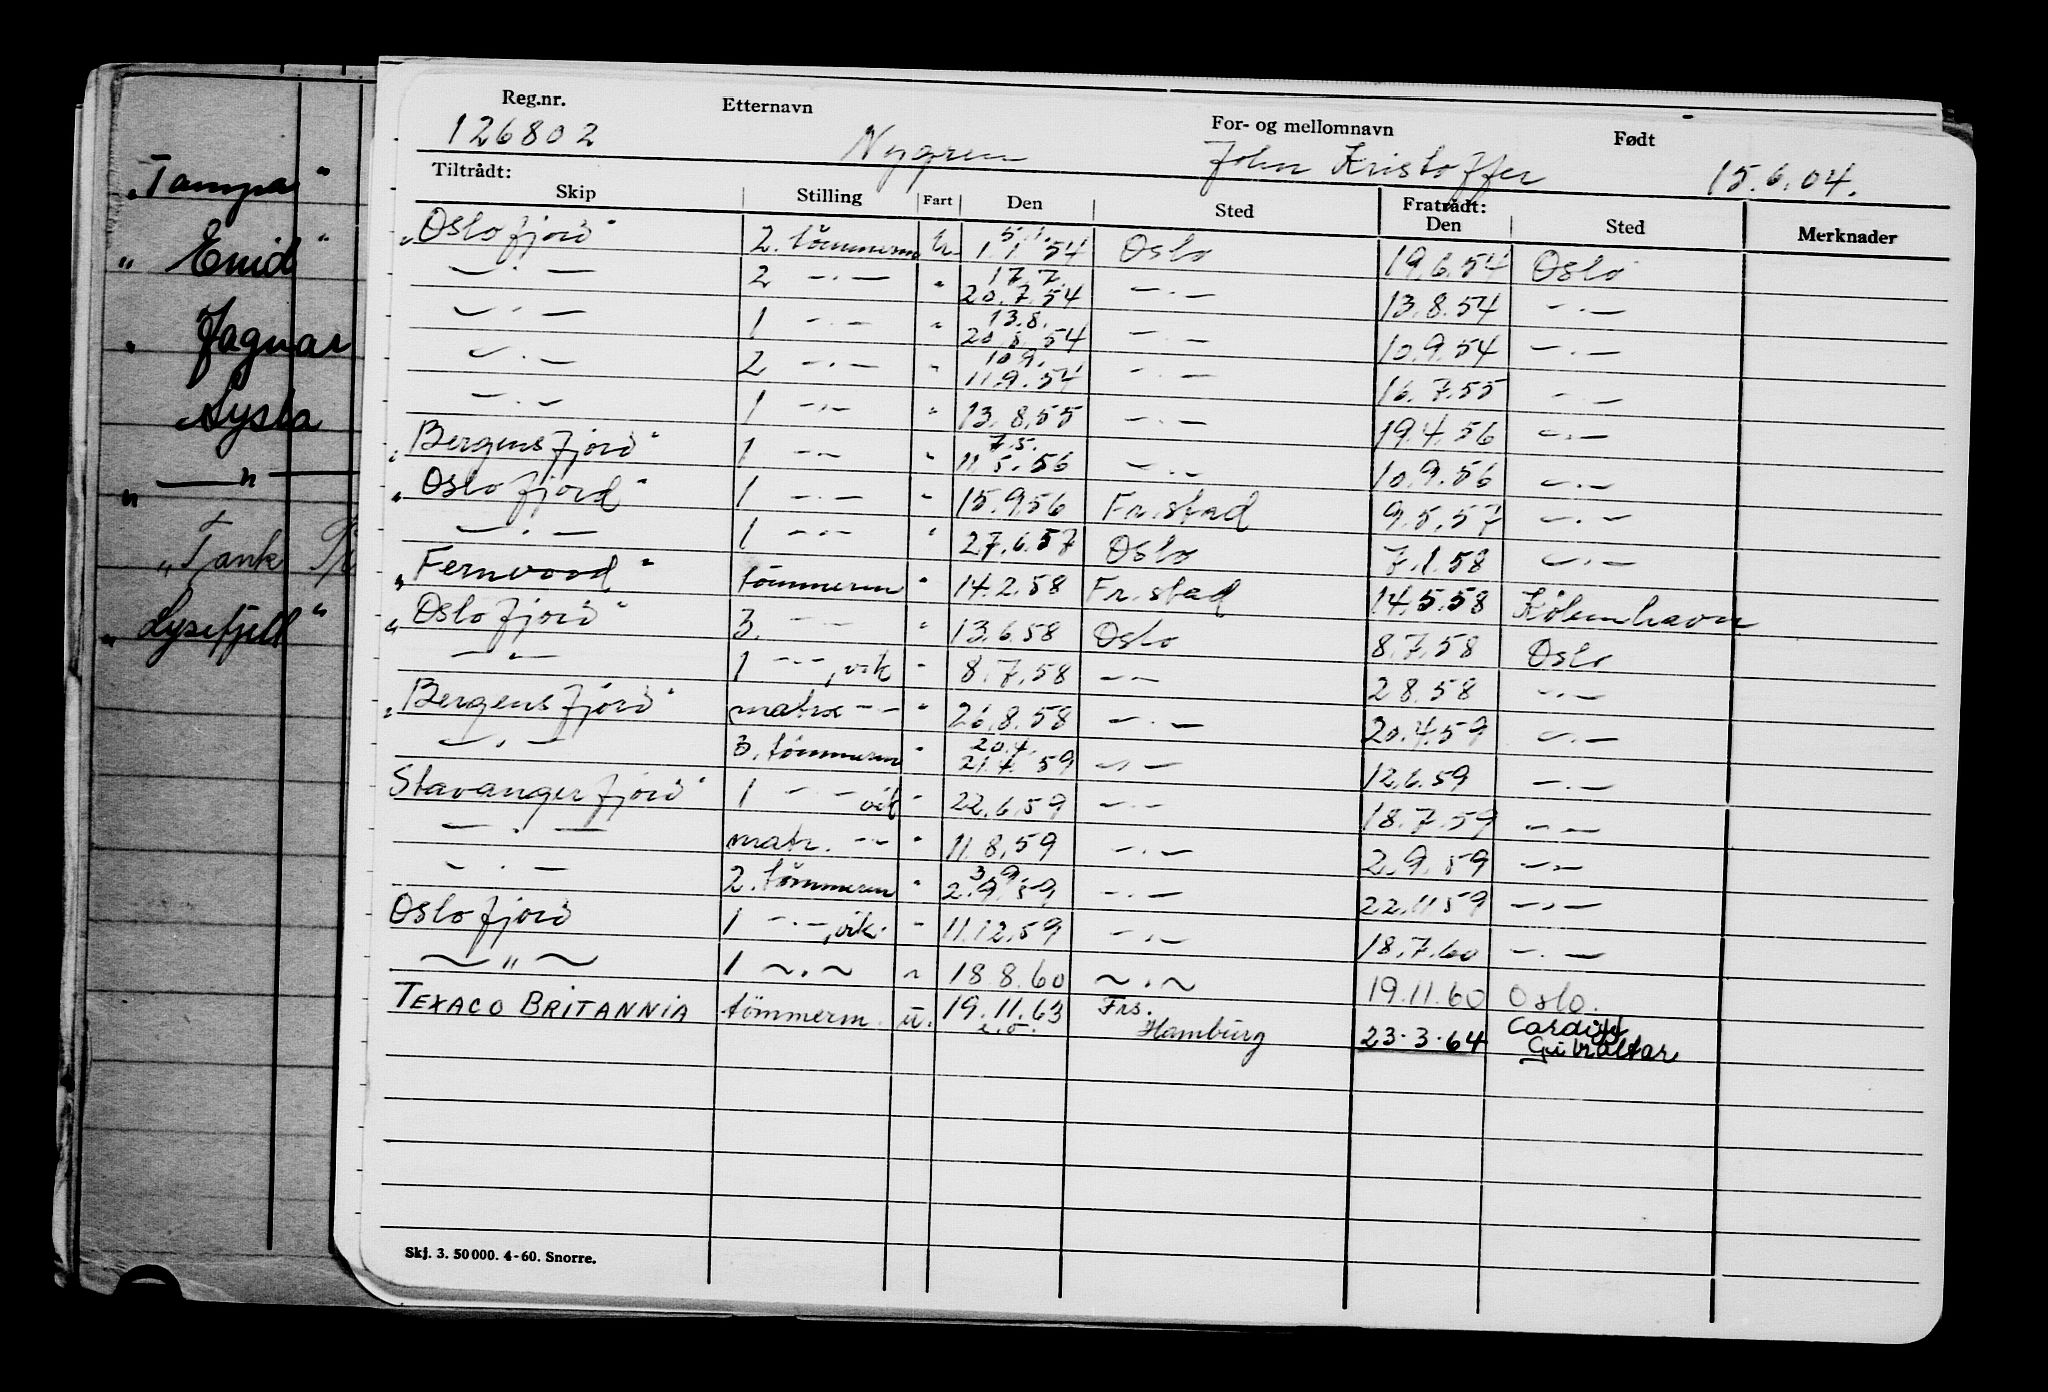 „Tampa“
„Enid“
„Jaguar
Lysla
„ — „ —
„Tank
„Lysefjell“
Reg.nr. Etternavn For- og mellomnavn Født
126802 Nygren John Kristoffer 15.6.04.
Tiltrådt: Fratrådt:
Skip Stilling Fart Den Sted Den Sted Merknader
„Oslofjord“ 2. tömmerm 5.1. 1.1.54 Oslo 19.6.54 Oslo
— . — 2 — . — " 17.7. 20.7.54 — . — 13.8.54 — . —
— . — 1 — . — " 13.8. 20.8.54 — . — 10.9.54 — . —
— . — 2 — . — " 10.9. 11.9.54 — . — 16.7.55 — . —
— . — 1 — . — " 13.8.55 — . — 19.4.56 — . —
„Bergensfjord“ 1 — — " 7.5. 11.5.56 — . — 10.9.56 — . —
„Oslofjord“ 1 — . — " 15.9.56 Fr.stad 9.5.57 — . —
— . — 1 — . — " 27.6.57 Oslo 7.1.58 — . —
„Fernwood“ tömmerm " 14.2.58 Fr.stad 14.5.58 Köbenhavn
„Oslofjord“ 3. — — " 13.6.58 Oslo 8.7.58 Oslo
— " — 1 — . —, vik " 8.7.58 — — 2.8.58 — . —
„Bergensfjord“ matrx — — " 26.8.58 — . — 20.4.59 — . —
— . — 3. tömmerm " 20.4. 21.4.59 — . — 12.6.59 — . —
Stavangerfjord“ 1 — . — vik " 22.6.59 — . — 18.7.59 — . —
— . — matr. — — " 11.8.59 — . — 2.9.59 — . —
— . — 2. tömmerm " 3.9. 2.9.59 — . — 22.11.59 — . —
Oslofjord 1 — . —, vik. " 11.12.59 — . — 18.7.60 — . —
— „ — 1 — . — " 18.8.60 — . — 19.11.60 Oslo.
TEXACO BRITANNIA tömmerm. u. 19.11.63 Frs. Hamburg 23.3.64 Cardiff Gibraltar
Skj. 3. 50 000. 4-60. Snorre.